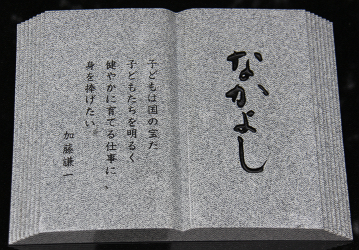 なかよし
子どもは国の宝だ
子どもたちを明るく
健やかに育てる仕事に、
身を捧げたい。
加藤謙一